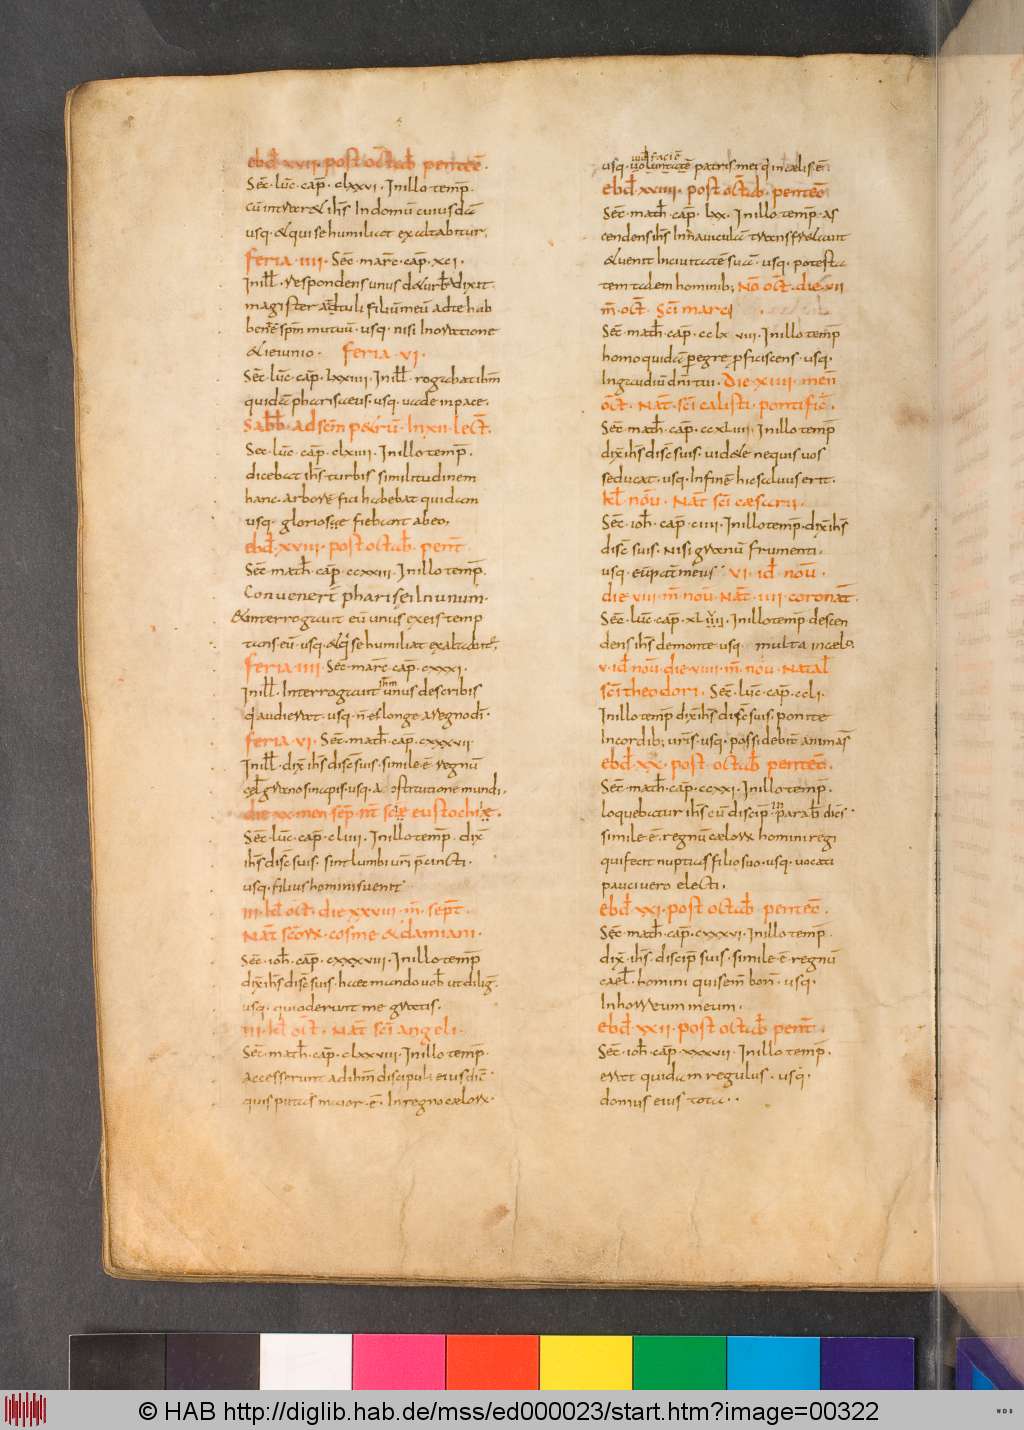 ebd̄ xvii · post oct̄ab̄ pentec̄ ·
Sec̄ · luc̄ · cap̄ · clxxvi · In illo temp̄ ·
cū intraret ihs̄ In domū cuiusdā
usq · & qui se humiliat exaltabitur,
feria · iiii · Sec̄ · marc̄ · cap̄ · xci ·
In ill̄ · respondens unus d& urb̄a dixit ·
magister attuli filiū meū ad te hab
bent̄ē sp̄m mutū · usq · nisi In oratione
& ieiunio · feria · vi ·
Sec̄ · luc̄ · cap̄ · lxxiiii · In ill̄ · rogabat ihm̄
quidā pharisaeus · usq · uade in pace ·
Sabb̄ · ad sc̄m p&rū · In xii · lect̄ ·
Sec · luc̄ · cap̄ · clxiii · In illo temp̄ ·
dicebat ihs̄ turbis similitudinem
hanc · arborē fici habebat quidam
usq · gloriosę fiebant ab eo,
ebd̄ · xviii · post octab̄ · pent̄
Sec̄ · math̄ · cap̄ · ccxxiii · In illo temp̄ ·
Convenert̄ pharisei In unum ·
& interrogauit eū unus ex eis temp
tans eū · usq · & q̄ se humiliat exaltabit̄ ·
feria · iiii · Sec̄ · marc̄ · cap̄ · cxxxi ·
In ill̄ · Interrogauit ihm̄ unus de scribis
q̄ audierat · usq · n̄ es longe a regno dī ·
feria · vi · Sec̄ · math̄ · cap̄ · cxxxvii
In ill̄ · dix̄ ihs̄ disc̄ suis · simile ē regnū
cel̄ grano sinapis · usq · a c ostitutione mundi,
die xx men sep̄ · nt̄ sc̄ę eustochię ·
Sec̄ · luc̄ · cap̄ · cliiii · In illo temp̄ · dix̄
ihs̄ disc̄ suis · sint lumbi ur̄i p̄cincti ·
usq · filius hominis uenit
iii · kl̄ oct̄ · die xxviii · m̄ · sept̄ ·
Nat̄ sc̄orum · cosme & damiani ·
Sec̄ · ioh̄ · cap̄ · cxxxviii · In illo temp̄
dix̄ ihs̄ disc̄ suis · haec mando uob̄ ut diliḡ ·
usq · qui oderunt me gratis ·
iii · kl̄ oct̄ · Nat̄ sc̄i angeli ·
Sec̄ · math̄ · cap̄ · clxxviii · In illo temp̄ ·
Accesserunt ad ihm̄ discipuli eius dic̄ ·
quis putas maior · ē · In regno cælorum ·
usq · uult facie uoluntatē patris mei q̄ in cælis · ē ·
ebd̄ xviiii · post oct̄ab · pentec̄
Sec̄ · math̄ · cap̄ · lxx · In illo temp̄ · as
cendens ihs̄ In nauiculā transfr&auit
& uenit In ciuitatē suā · usq · potesta
tem talem hominib; Non̄ oct̄ · die vii
m̄ · oct̄ · Sc̄i marci
Sec̄ · math̄ · cap̄ · cclx viii · In illo temp̄
homo quidā pegrę pficiscens · usq ·
In gaudiū dn̄i tui · Die xiiii · men̄
oct̄ · Nat̄ · sc̄i calisti · pontific̄ ·
Sec̄ · math̄ · cap̄ · ccxliiii · In illo temp̄
dix̄ ihs̄ disc̄ suis · uid&e ne quis uos
seducat · usq · In finē hic saluus erit ·
kl̄ nōu · Nat̄ sc̄i cæsarii ·
Sec̄ · ioh̄ · cap̄ · ciiii · In illo temp̄ · dix̄ ihs̄
disc̄ suis · Nisi granū frumenti,
usq · eū pat̄ meus · vi · id̄ · nōu ·
die viii · m̄ nōu · Nat̄ · iiii coronat̄ ·
Sec̄ · luc̄ · cap̄ · In illo temp̄ descen
dens ihs̄ de monte usq · multa in celo ·
v · id̄ nōu · die viiii · m̄ · nōu · Natal̄
sc̄i theodori · Sec̄ · luc̄ · cap̄ · ccli ·
In illo temp̄ dix̄ ihs̄ disc̄ suis · ponite
In cordib; ur̄is · usq · possidebit̄ animas̄
ebd̄ · xx · post · octab̄ pentec̄ ·
Sec̄ · math̄ · cap̄ · ccxxi · In illo temp̄ ·
loquebatur ihs̄ cū discip̄ in parab̄ dic̄s ·
simile · ē · regnū cælorum homini regi
qui fecit nuptias filio suo · usq · uocati
pauci uero electi,
ebd̄ · xxi · post octab̄ · pentec̄ ·
Sec̄ · math̄ · cap̄ · cxxxvi · In illo temp̄ ·
dix̄ · ihs̄ · discip̄ suis · simile · ē regnū
cael̄ · homini qui sem̄ bon̄ · usq ·
In horreum meum ·
ebd̄ · xxii · post octab̄ pent̄ ·
Sec̄ · ioh̄ · cap̄ · xxxvii · In illo temp̄ ·
erat quidam regulus · usq ·
domus eius tota · ·
© HAB http://diglib.hab.de/mss/ed000023/start.htm?image=00322